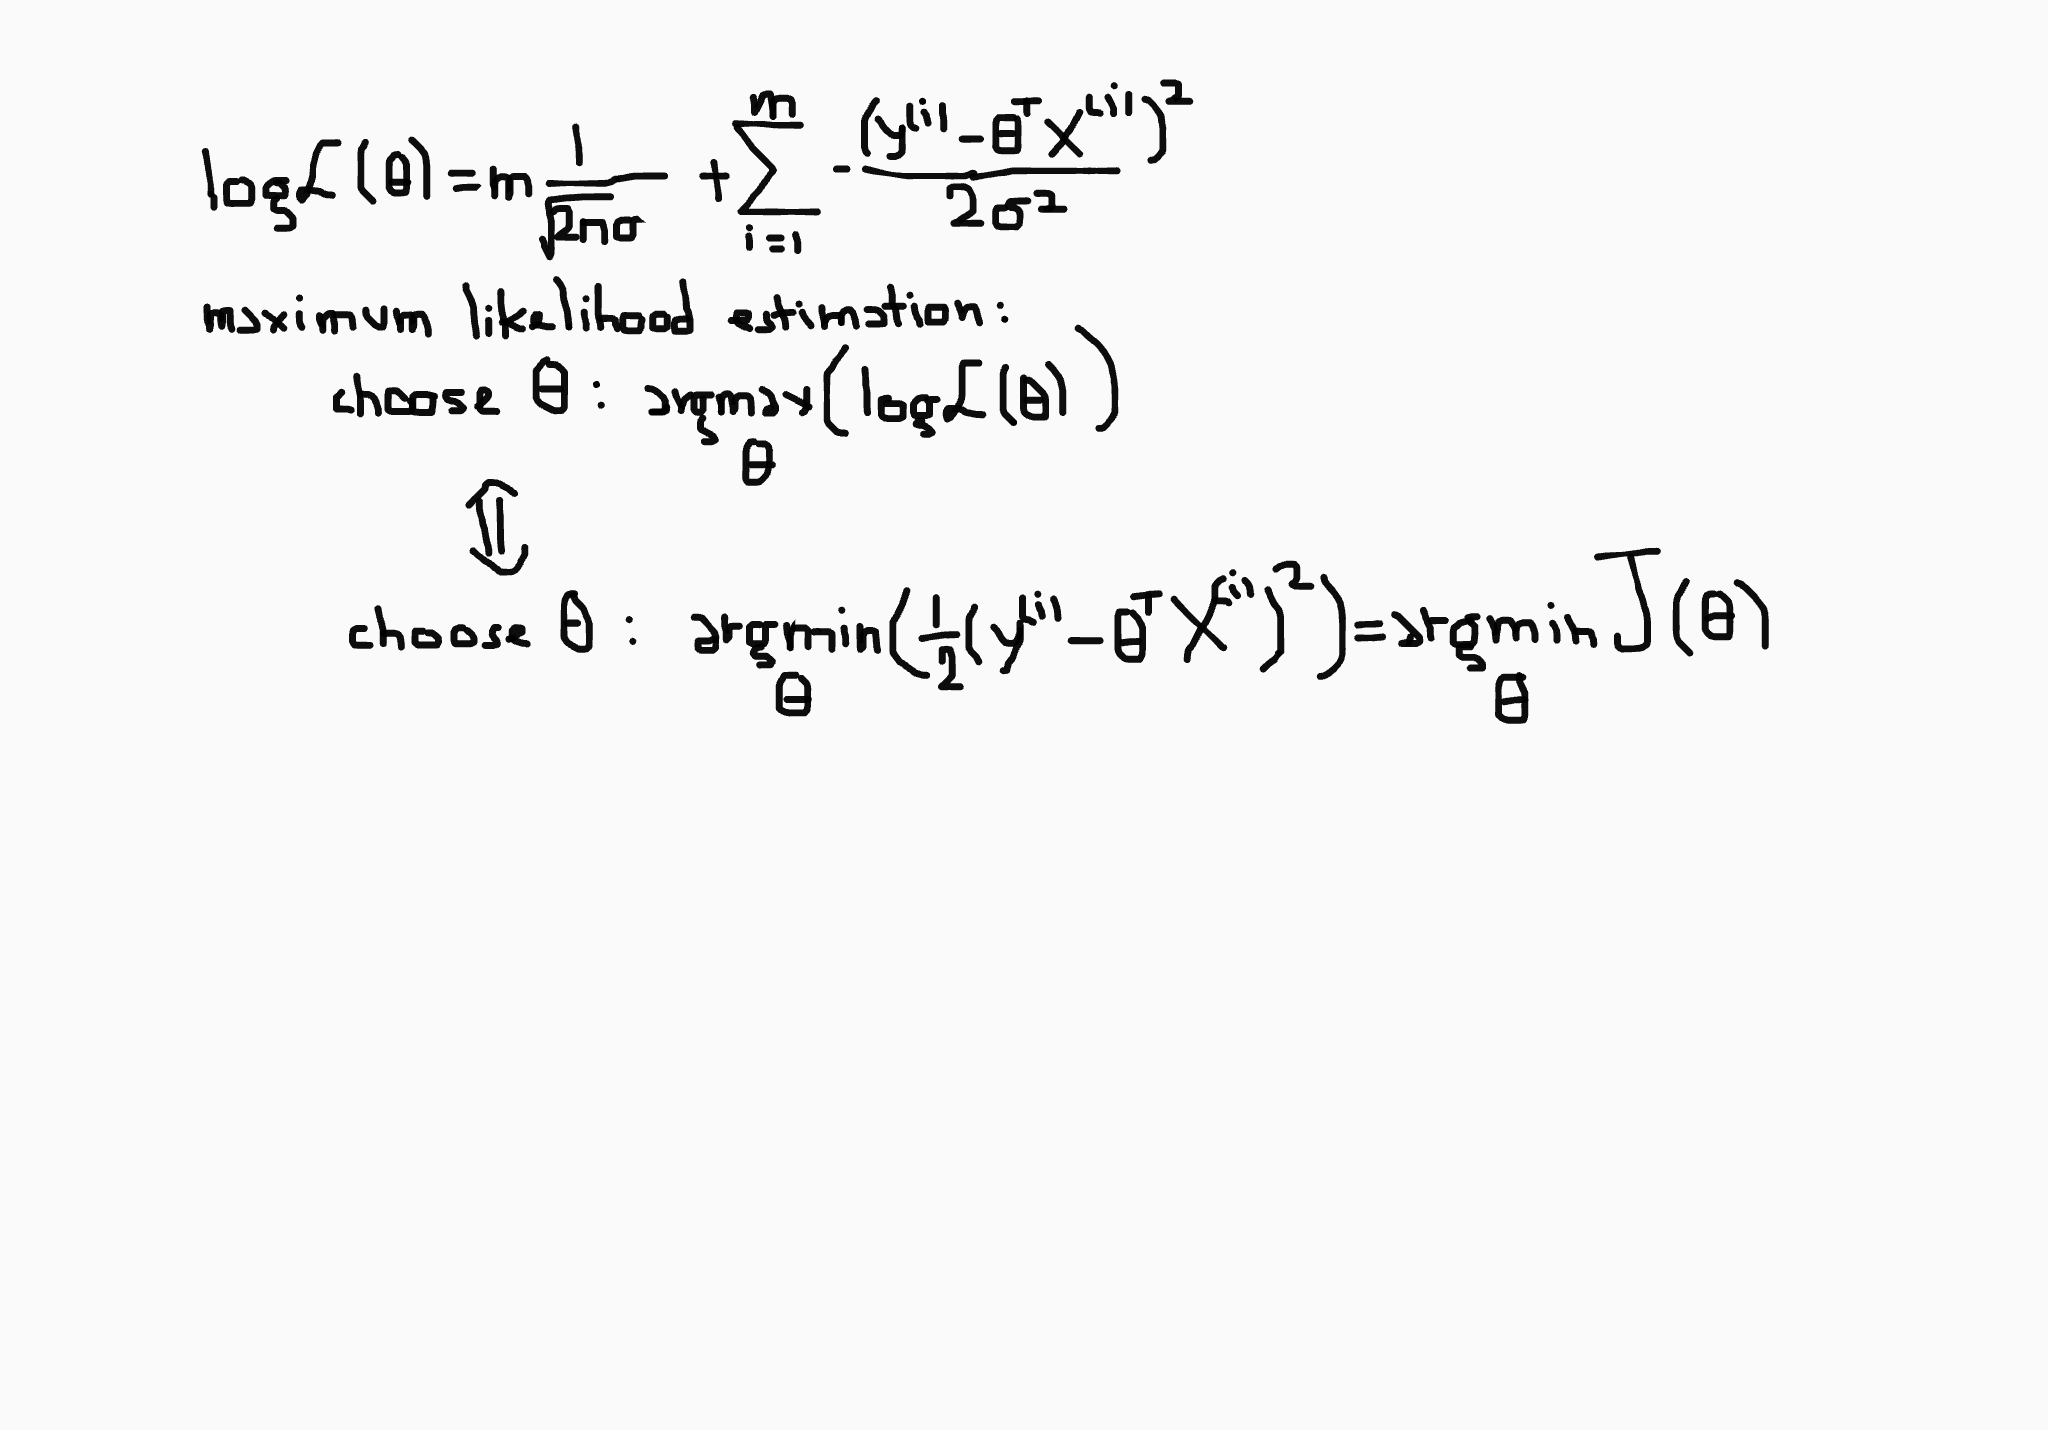 log ℒ(θ) = m 1/√2πσ + Σ_{i=1}^{m} - (y^{(i)} - θ^T x^{(i)})^2 / 2σ^2
maximum likelihood estimation:
choose θ: argmax_θ (log ℒ(θ))
⇕
choose θ: argmin_θ (1/2 (y^{(i)} - θ^T x^{(i)})^2) = argmin_θ J(θ)